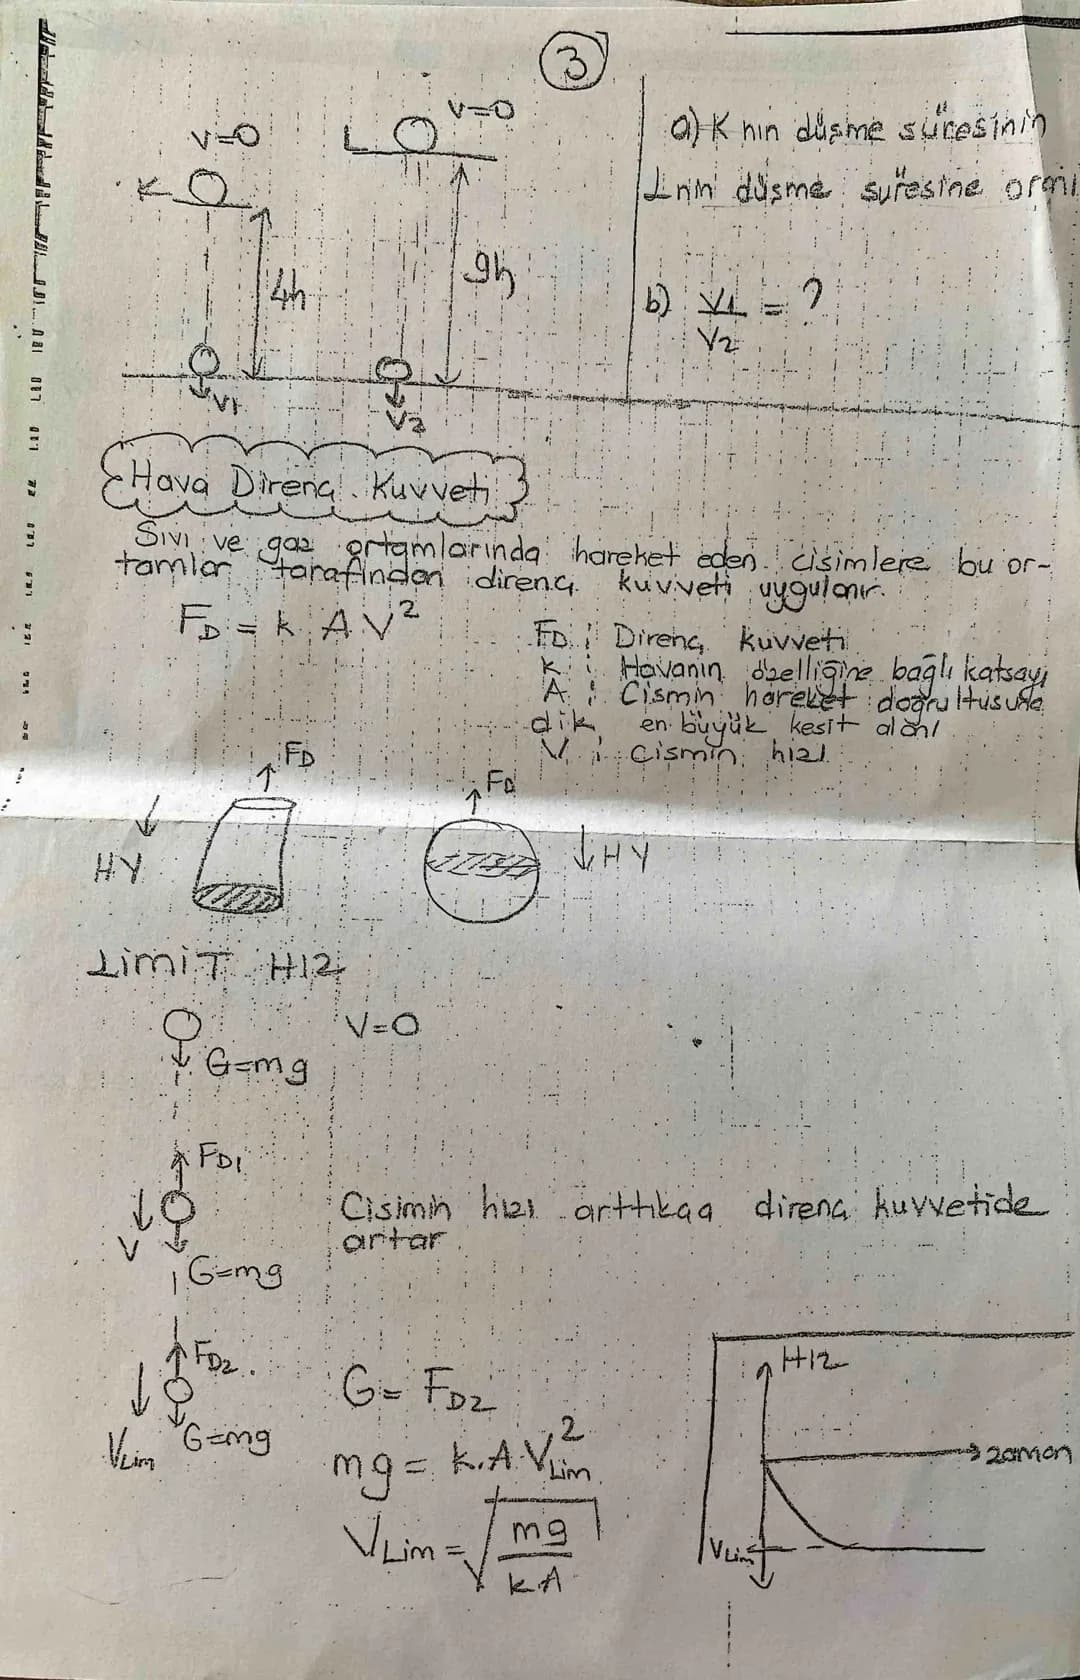 3
V=0
V=0
K
L
4h
9h
V1
V2
a) K nın düşme süresinin
L nin düşme süresine oranı
b) V1/V2 = ?
Hava Direnç Kuvveti
Sıvı ve gaz ortamlarında hareket eden cisimlere bu or-
tamlar tarafından direnç kuvveti uygulanır.
FD = k A V²
FD : Direnç kuvveti
K : Havanın özelliğine bağlı katsayı
A : Cismin hareket doğrultusuna
dik en büyük kesit alanı
V : Cismin hızı
FD
FD
HY
HY
LİMİT HIZ
V=0
G=mg
FD1
V
Cisimin hızı arttıkça direnç kuvvetide
artar.
G=mg
FD2
G= FD2
VLim
G=mg
mg = k.A.VLim²
VLim = √mg/kA
HIZ
zaman
VLim